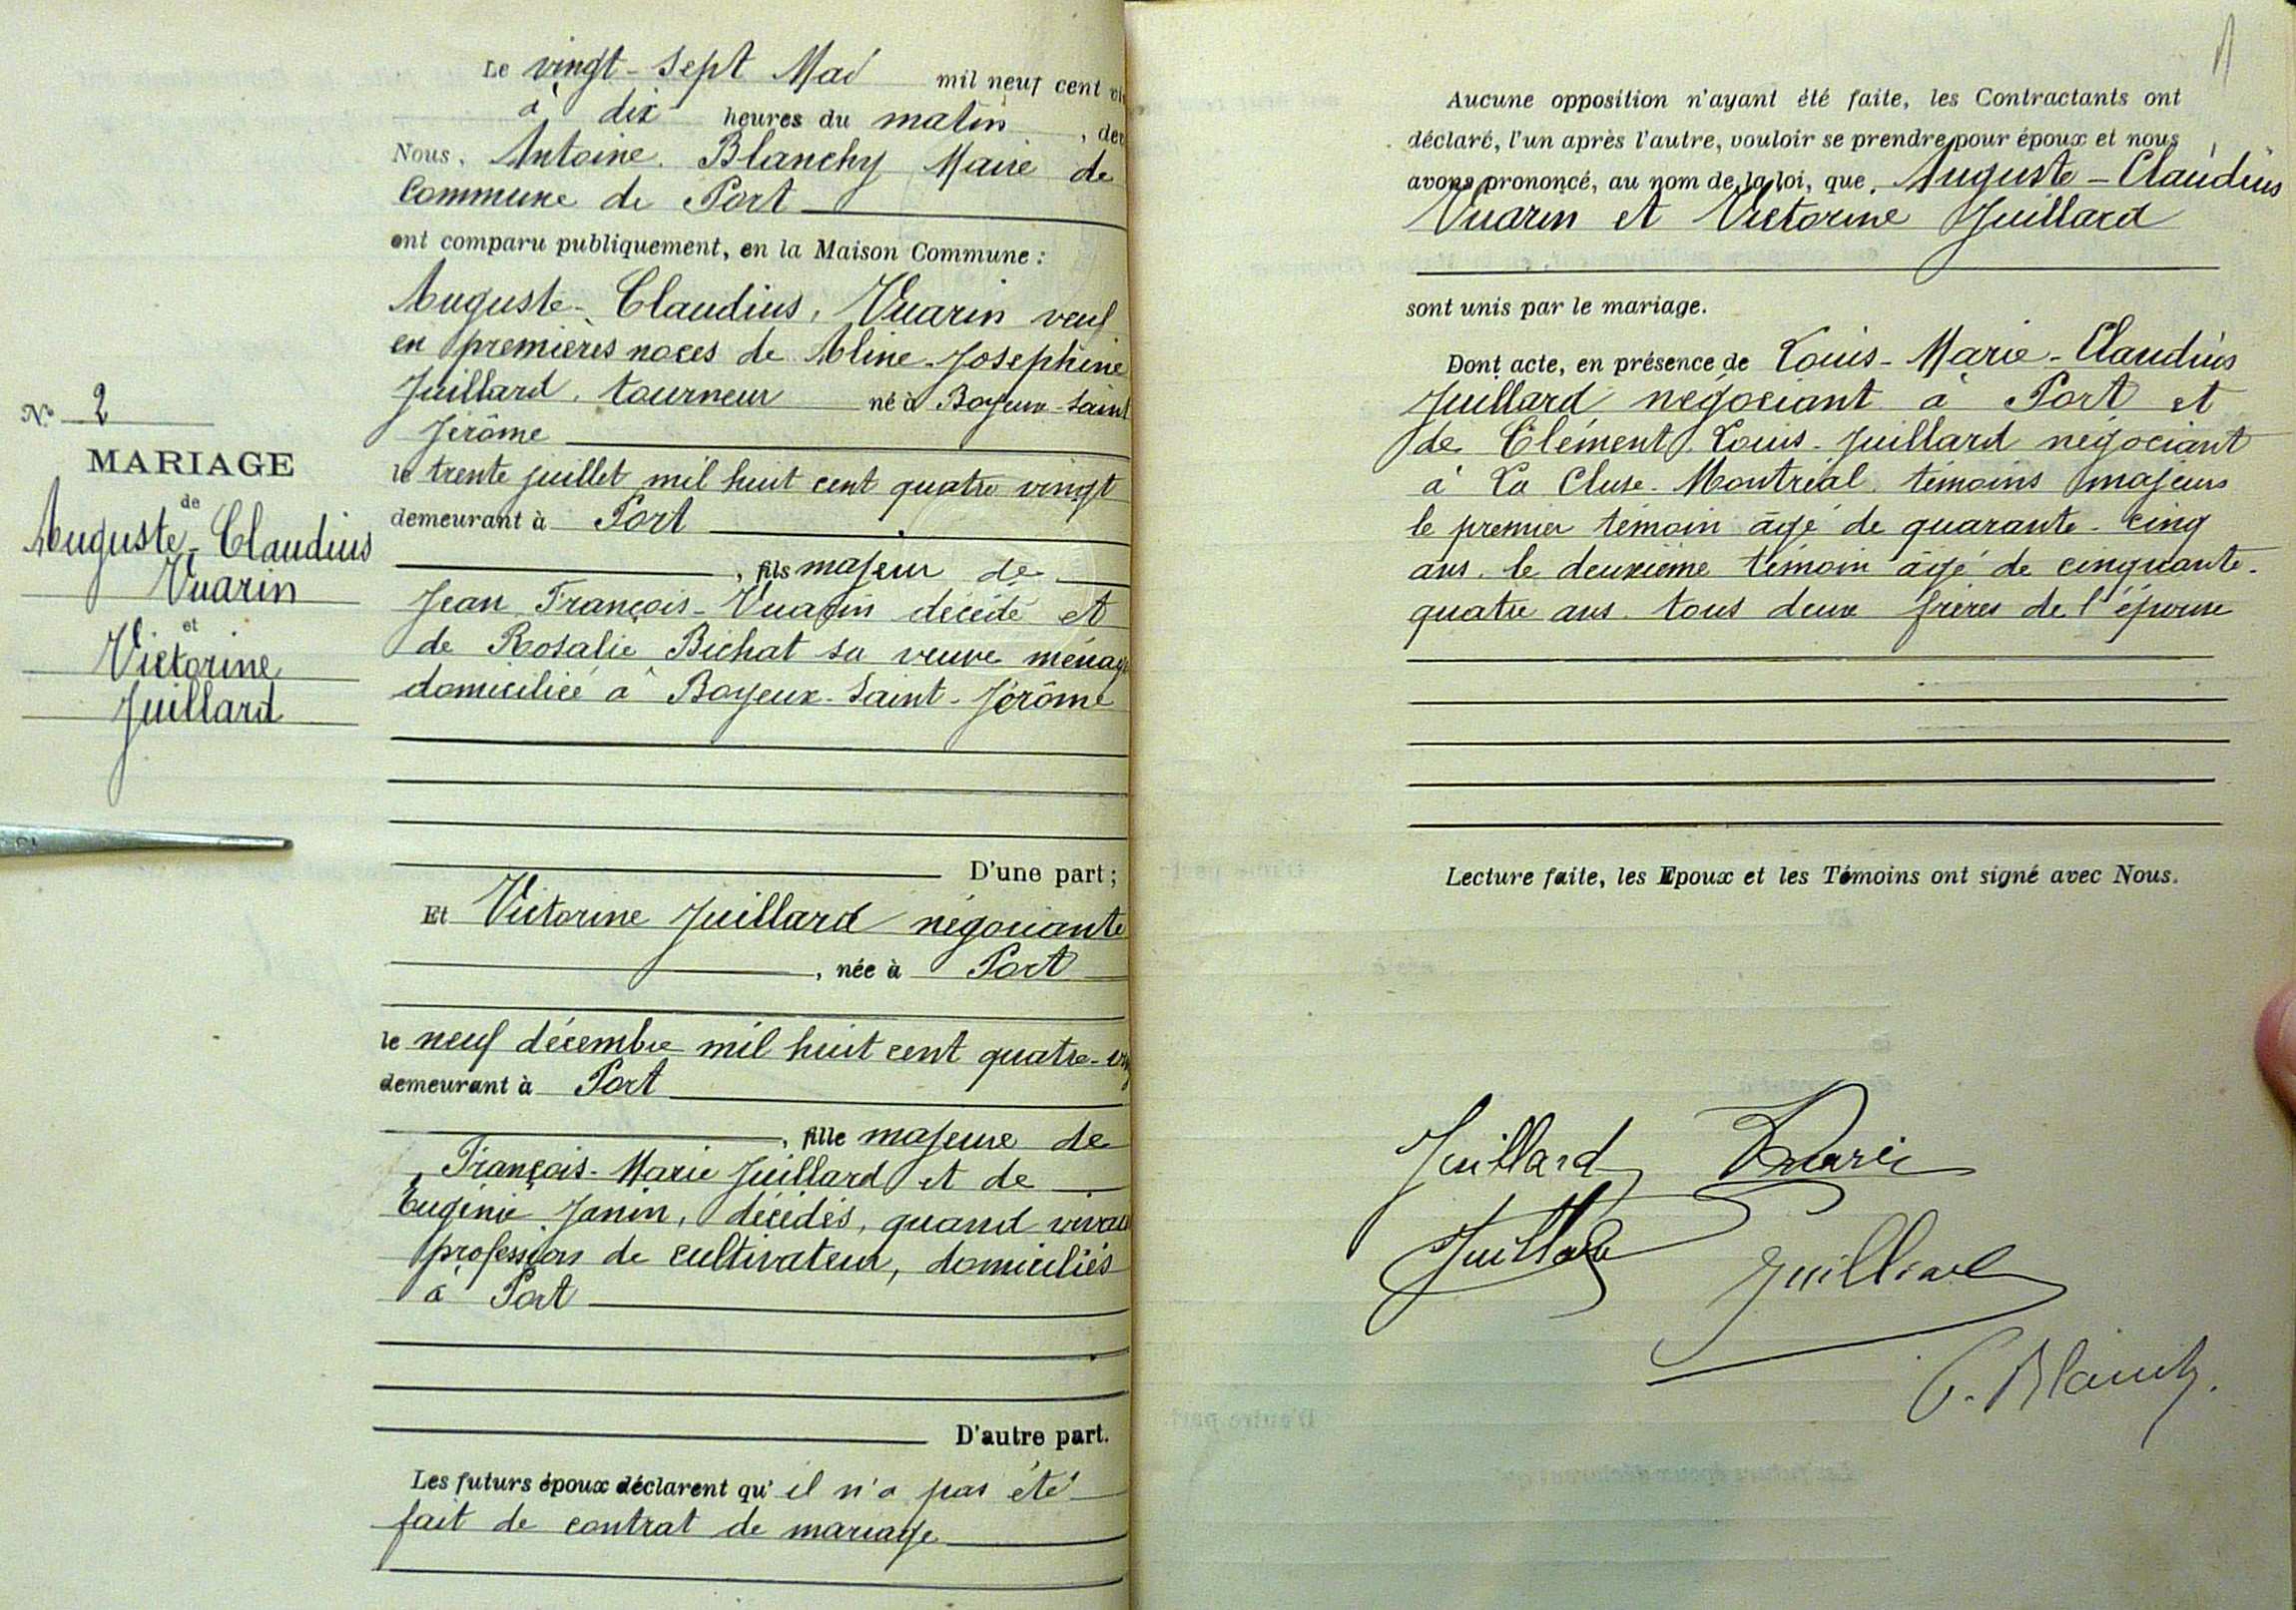 N° 2
MARIAGE
de
Auguste-Claudius
Vuarin
et
Victorine
Juillard
Le vingt-sept Mai mil neuf cent
à dix heures du matin,
Nous, Antoine Blanchy Maire de
Commune de Port
ont comparu publiquement, en la Maison Commune :
Auguste-Claudius, Vuarin veuf
en premières noces de Aline-Josephine
Juillard, tourneur né à Boyeux-Saint
Jérôme
le trente juillet mil huit cent quatre vingt
demeurant à Port
, fils majeur de
Jean François-Vuarin décédé et
de Rosalie Bichat sa veuve
domiciliée à Boyeux-Saint-Jérôme
D'une part ;
Et Victorine Juillard négociante
, née à Port
le neuf décembre mil huit cent quatre-
demeurant à Port
, fille majeure de
François-Marie Juillard et de
Eugénie Janin, décédés, quand
profession de cultivateur, domiciliés
à Port
D'autre part.
Les futurs époux déclarent qu'il n'a pas été
fait de contrat de mariage
Aucune opposition n'ayant été faite, les Contractants ont
déclaré, l'un après l'autre, vouloir se prendre pour époux et nous
avons prononcé, au nom de la loi, que, Auguste-Claudius
Vuarin et Victorine Juillard
sont unis par le mariage.
Dont acte, en présence de Louis-Marie-Claudius
Juillard négociant à Port et
de Clément Louis-Juillard négociant
à La Cluse-Montréal. témoins majeurs
le premier témoin âgé de quarante-cinq
ans. le deuxième témoin âgé de cinquante-
quatre ans. tous deux frères de l'épouse
Lecture faite, les Epoux et les Témoins ont signé avec Nous.
Juillard Vuarin
Juillard
Juillard
Blanchy.